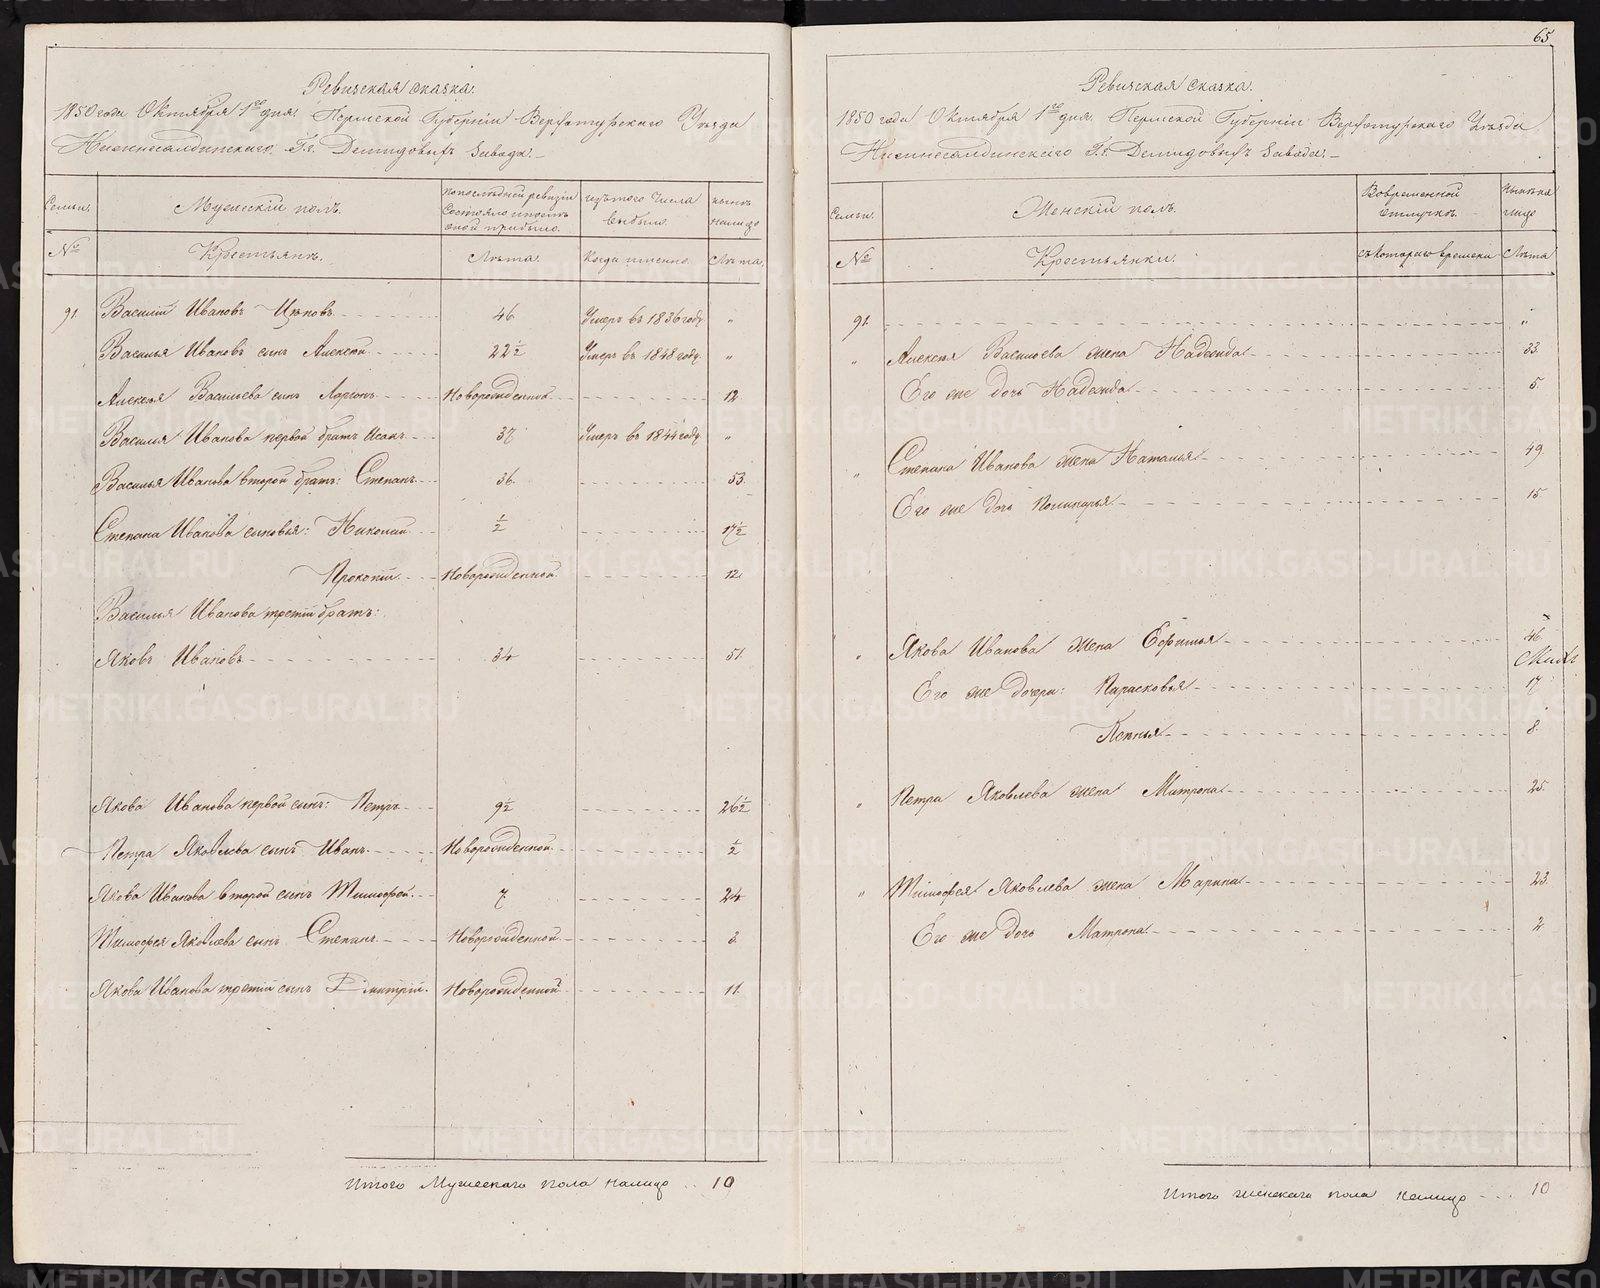 65
Ревизская сказка.
1850 года Октября 1го дня. Пермской Губернии Верхотурскаго Уезда
Нижнесалдинскаго Г.г. Демидовыхъ Завода.
Семьи. Мужескій полъ. По последней ревизіи состояло и после оной прибыло. Изъ того числа выбыло. Ныне на лицо
№ Крестьяне. Лѣта. Когда именно. Лѣта.
91. Василій Ивановъ 46 Умеръ въ 1836 году. "
Василья Иванова сынъ Алексѣй 22½ Умеръ въ 1848 году. "
Алексѣя Васильева сынъ Ларіонъ Новорожденной 12
Василья Иванова первой братъ Исакъ 37 Умеръ въ 1844 году. "
Василья Иванова второй братъ: Степанъ 36. 53.
Степана Иванова сыновья: Николай ½ 17½
Прокопій Новорожденной 12.
Василья Иванова третій братъ:
Яковъ Ивановъ 34 51.
Якова Иванова первой сынъ: Петръ 9½ 26½
Петра Яковлева сынъ Иванъ Новорожденной ½
Якова Иванова второй сынъ Тимофей 7 24
Тимофея Яковлева сынъ Степанъ Новорожденной 3.
Якова Иванова третій сынъ Дмитрій. Новорожденной 11.
Итого Мужескаго пола налицо 10
Ревизская сказка.
1850 года Октября 1го дня. Пермской Губерніи Верхотурскаго Уезда
Нижнесалдинскаго Г.г. Демидовыхъ Завода.
Семьи. Женскій полъ. Во временной отлучкѣ. Ныне на лицо
№ Крестьянки. съ котораго времени Лѣта
91. "
" Алексѣя Васильева жена Надежда 33.
Его же дочь Надежда 5
" Степана Иванова жена Наталья 49
Его же дочь 15.
" Якова Иванова жена Ефимья 46.
Его же дочери: Парасковья 17
8.
" Петра Яковлева жена Матрона 25.
" Тимофея Яковлева жена Марина 23.
Его же дочь Матрона 2
Итого женскаго пола налицо 10
METRIKI.GASO-URAL.RU